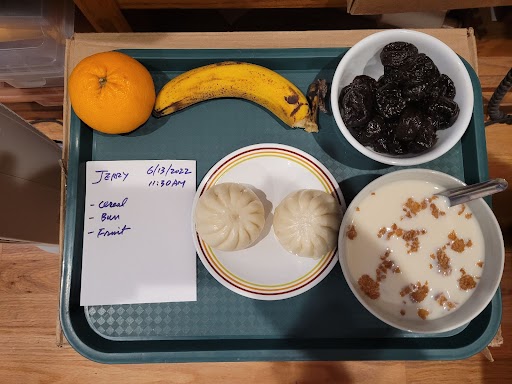 Jerry 6/13/2022
11:30 AM
- Cereal
- Bun
- Fruit